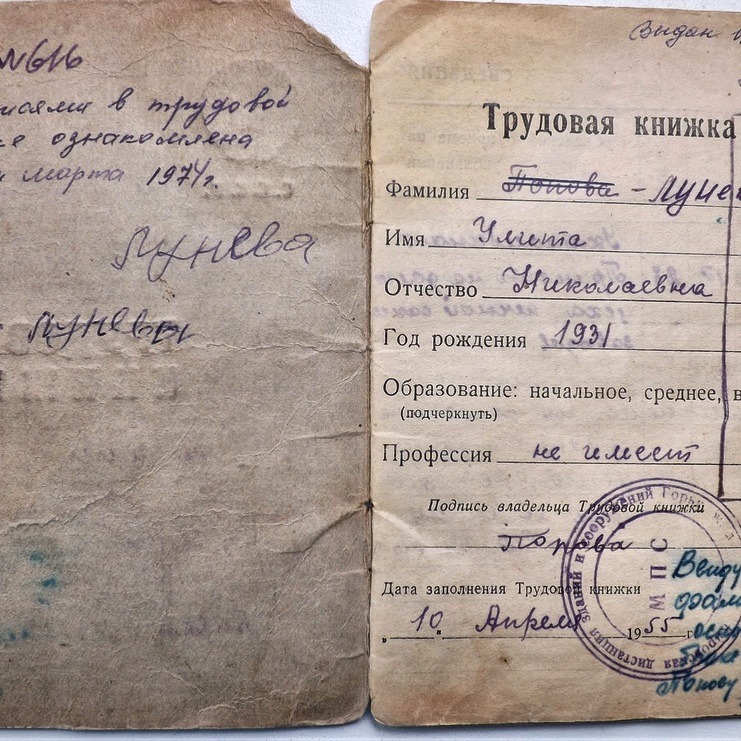 №616
в трудовой
ознакомлена
марта 1974г.
Лунева
Лунёвы
Выдан
Трудовая книжка
Фамилия Попова - Луне
Имя Улита
Отчество Николаевна
Год рождения 1931
Образование: начальное, среднее, в
(подчеркнуть)
Профессия не имеет
Подпись владельца Трудовой книжки
Попова
Дата заполнения Трудовой книжки
„10„ Апреля 1955 г.
дистанция зданий и сооружений Горьк ж.д.
МПС
Ввиду
Попову